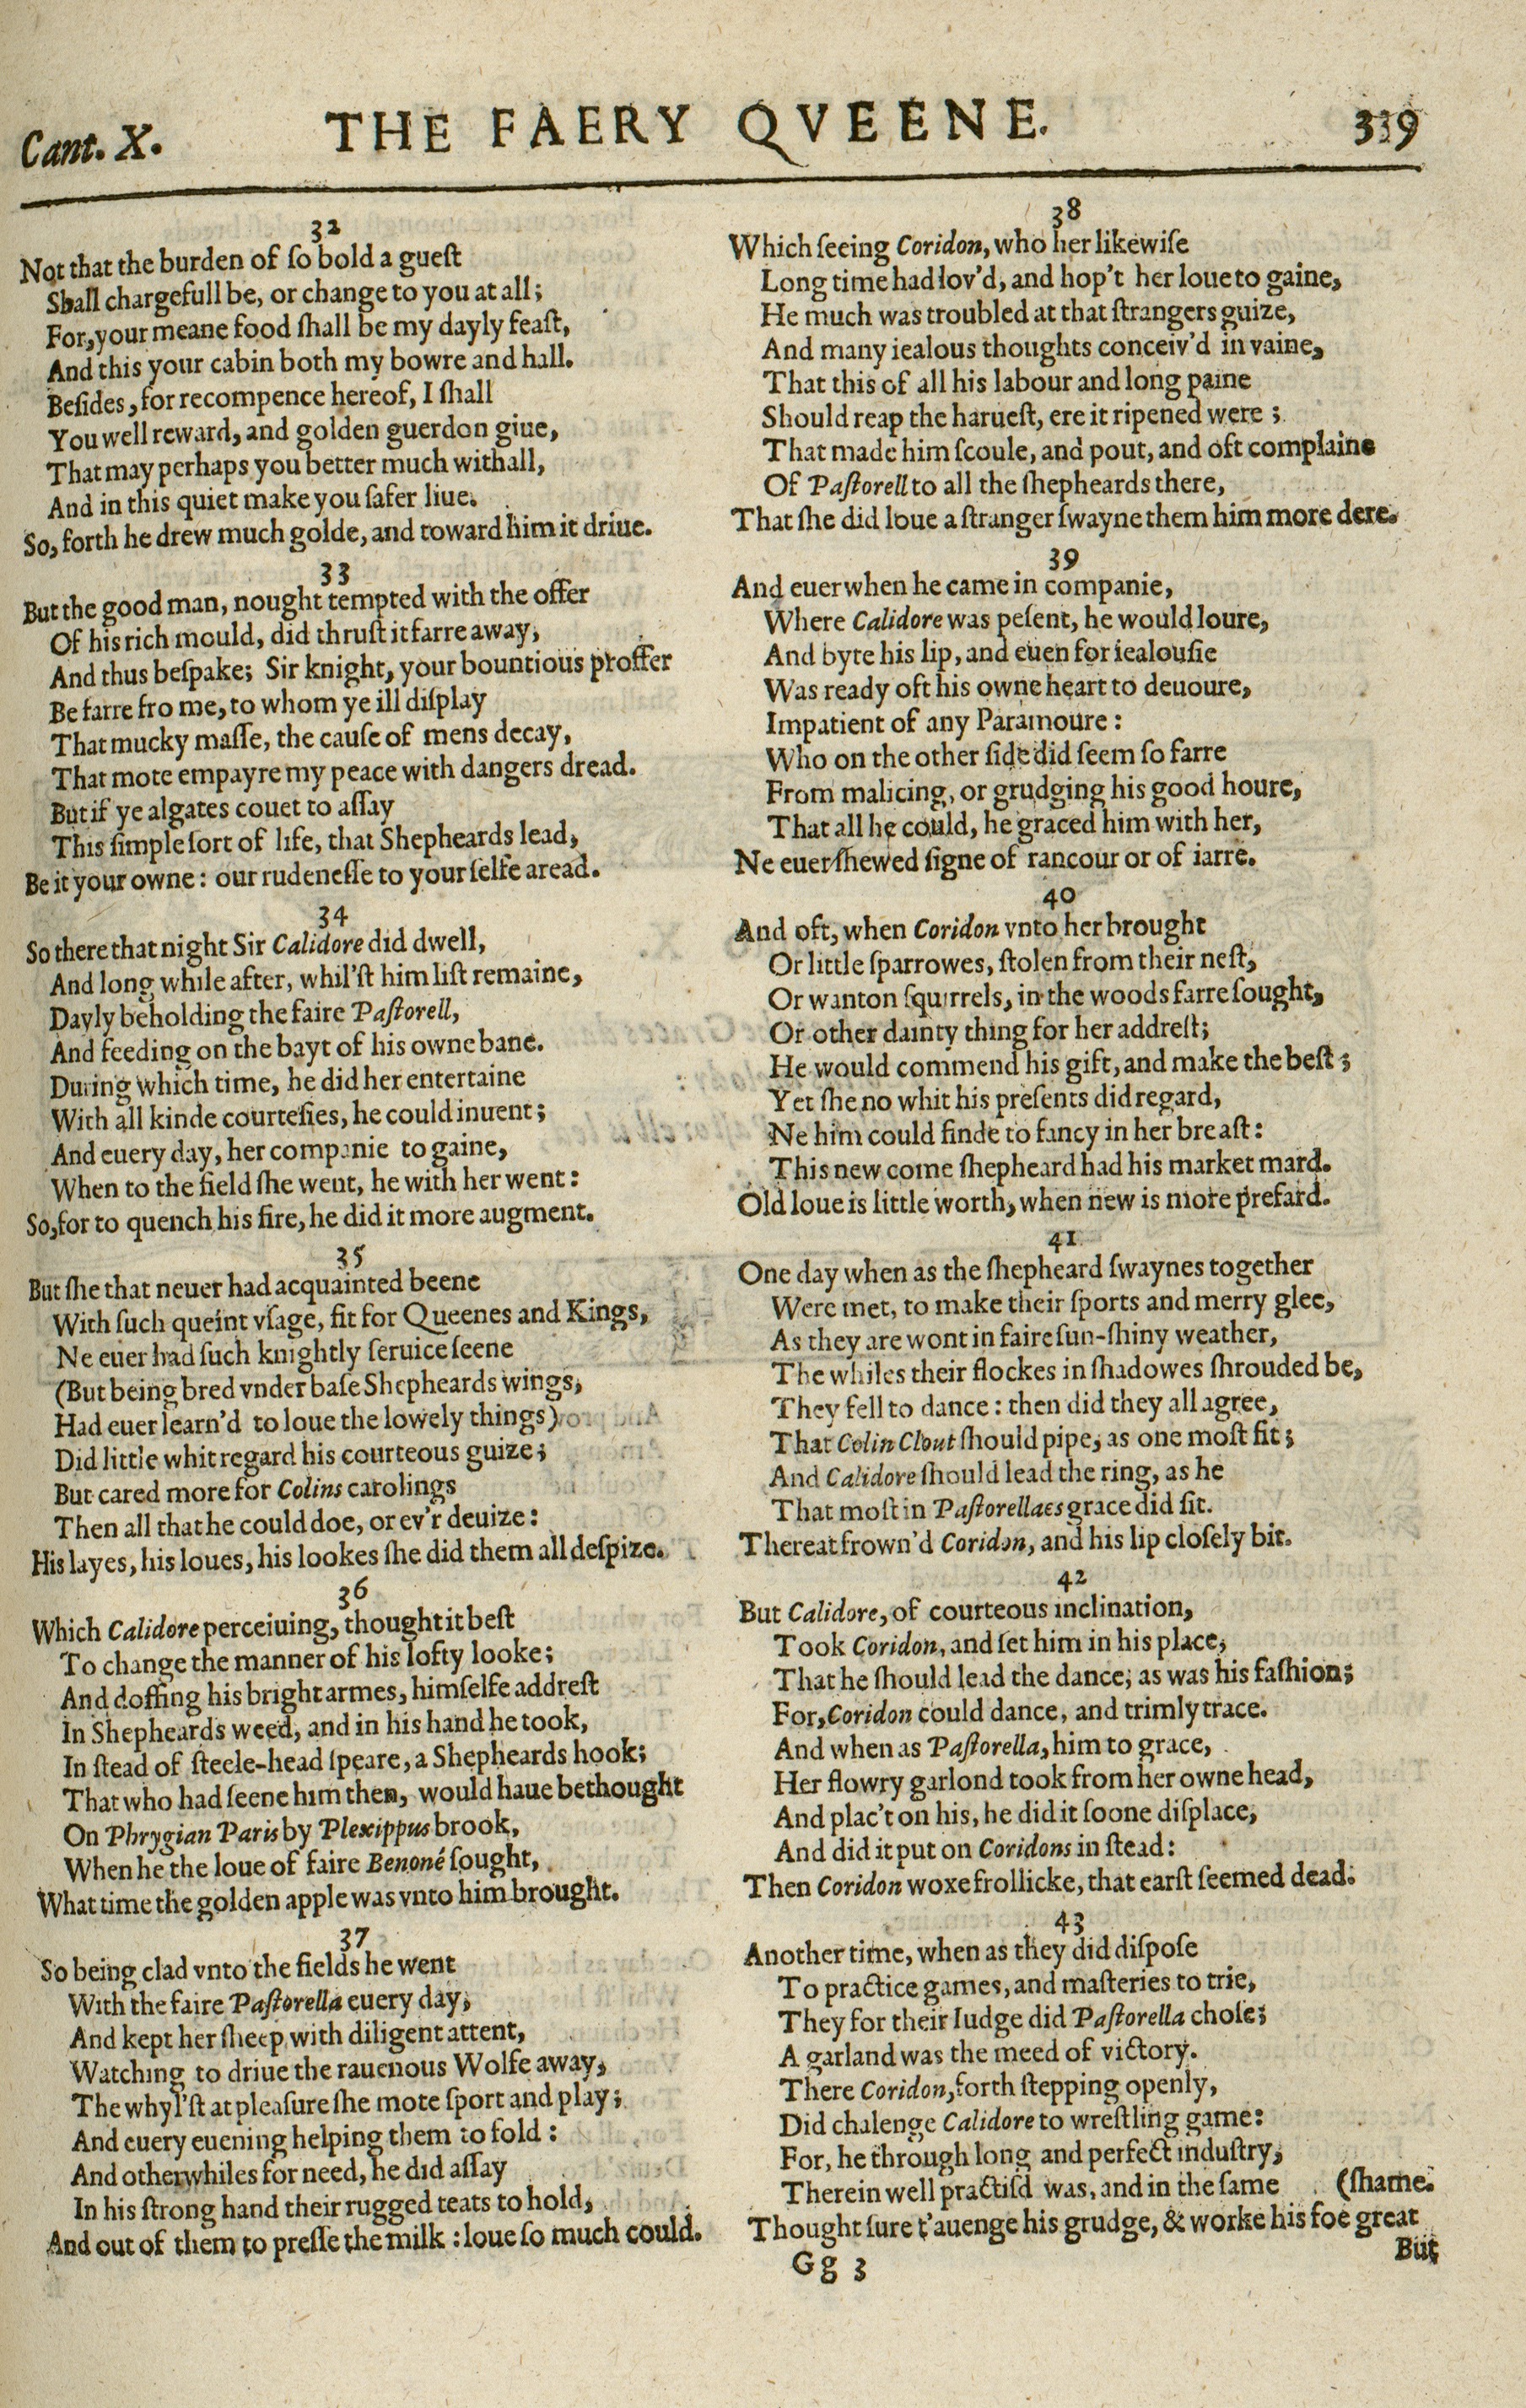 Cant. X.
THE FAERY QVEENE.
339
32
Not that the burden of ſo bold a gueſt
Shall chargefull be, or change to you at all;
For, your meane food ſhall be my dayly feaſt,
And this your cabin both my bowre and hall.
Beſides, for recompence hereof, I ſhall
You well reward, and golden guerdon giue,
That may perhaps you better much withall,
And in this quiet make you ſafer liue.
So, forth he drew much golde, and toward him it driue.
33
But the good man, nought tempted with the offer
Of his rich mould, did thruſt it farre away,
And thus beſpake; Sir knight, your bountious proffer
Be farre fro me, to whom ye ill diſplay
That mucky maſſe, the cauſe of mens decay,
That mote empayre my peace with dangers dread.
But if ye algates couet to aſſay
This ſimple ſort of life, that Shepheards lead,
Be it your owne: our rudeneſſe to your ſelfe aread.
34
So there that night Sir Calidore did dwell,
And long while after, whil'ſt him liſt remaine,
Dayly beholding the faire Paſtorell,
And feeding on the bayt of his owne bane.
During which time, he did her entertaine
With all kinde courteſies, he could inuent;
And euery day, her companie to gaine,
When to the field ſhe went, he with her went:
So, for to quench his fire, he did it more augment.
35
But ſhe that neuer had acquainted beene
With ſuch queint vſage, fit for Queenes and Kings,
Ne euer had ſuch knightly ſeruice ſeene
(But being bred vnder baſe Shepheards wings,
Had euer learn'd to loue the lowely things)
Did little whit regard his courteous guize;
But cared more for Colins carolings
Then all that he could doe, or ev'r deuize:
His layes, his loues, his lookes ſhe did them all deſpize.
36
Which Calidore perceiuing, thought it beſt
To change the manner of his lofty looke;
And doffing his bright armes, himſelfe addreſt
In Shepheards weed, and in his hand he took,
In ſtead of ſteele-head ſpeare, a Shepheards hook;
That who had ſeene him then, would haue bethought
On Phrygian Paris by Plexippus brook,
When he the loue of faire Benoné ſought,
What time the golden apple was vnto him brought.
37
So being clad vnto the fields he went
With the faire Paſtorella euery day,
And kept her ſheep with diligent attent,
Watching to driue the rauenous Wolfe away,
The whyl'ſt at pleaſure ſhe mote ſport and play;
And euery euening helping them to fold:
And otherwhiles for need, he did aſſay
In his ſtrong hand their rugged teats to hold,
And out of them to preſſe the milk: loue ſo much could.
38
Which ſeeing Coridon, who her likewiſe
Long time had lov'd, and hop't her loue to gaine,
He much was troubled at that ſtrangers guize,
And many iealous thoughts conceiv'd in vaine,
That this of all his labour and long paine
Should reap the harueſt, ere it ripened were;
That made him ſcoule, and pout, and oft complaine
Of Paſtorell to all the ſhepheards there,
That ſhe did loue a ſtranger ſwayne them him more dere.
39
And euer when he came in companie,
Where Calidore was peſent, he would loure,
And byte his lip, and euen for iealouſie
Was ready oft his owne heart to deuoure,
Impatient of any Paramoure:
Who on the other ſide did ſeem ſo farre
From malicing, or grudging his good houre,
That all he could, he graced him with her,
Ne euer ſhewed ſigne of rancour or of iarre.
40
And oft, when Coridon vnto her brought
Or little ſparrowes, ſtolen from their neſt,
Or wanton ſquirrels, in the woods farre ſought,
Or other dainty thing for her addreſt;
He would commend his gift, and make the beſt;
Yet ſhe no whit his preſents did regard,
Ne him could finde to fancy in her breaſt:
This new come ſhepheard had his market mard.
Old loue is little worth, when new is more prefard.
41
One day when as the ſhepheard ſwaynes together
Were met, to make their ſports and merry glee,
As they are wont in faire ſun-ſhiny weather,
The whiles their flockes in ſhadowes ſhrouded be,
They fell to dance: then did they all agree,
That Colin Clout ſhould pipe, as one moſt fit;
And Calidore ſhould lead the ring, as he
That moſt in Paſtorellaes grace did ſit.
Thereat frown'd Coridon, and his lip cloſely bit.
42
But Calidore, of courteous inclination,
Took Coridon, and ſet him in his place,
That he ſhould lead the dance, as was his faſhion;
For, Coridon could dance, and trimly trace.
And when as Paſtorella, him to grace,
Her flowry garlond took from her owne head,
And plac't on his, he did it ſoone diſplace,
And did it put on Coridons in ſtead:
Then Coridon woxe frollicke, that earſt ſeemed dead.
43
Another time, when as they did diſpoſe
To practice games, and maſteries to trie,
They for their Iudge did Paſtorella choſe;
A garland was the meed of victory.
There Coridon, forth ſtepping openly,
Did chalenge Calidore to wreſtling game:
For, he through long and perfect induſtry,
Therein well practiſd was, and in the ſame (ſhame.
Thought ſure t'auenge his grudge, & worke his foe great
Gg 3
But